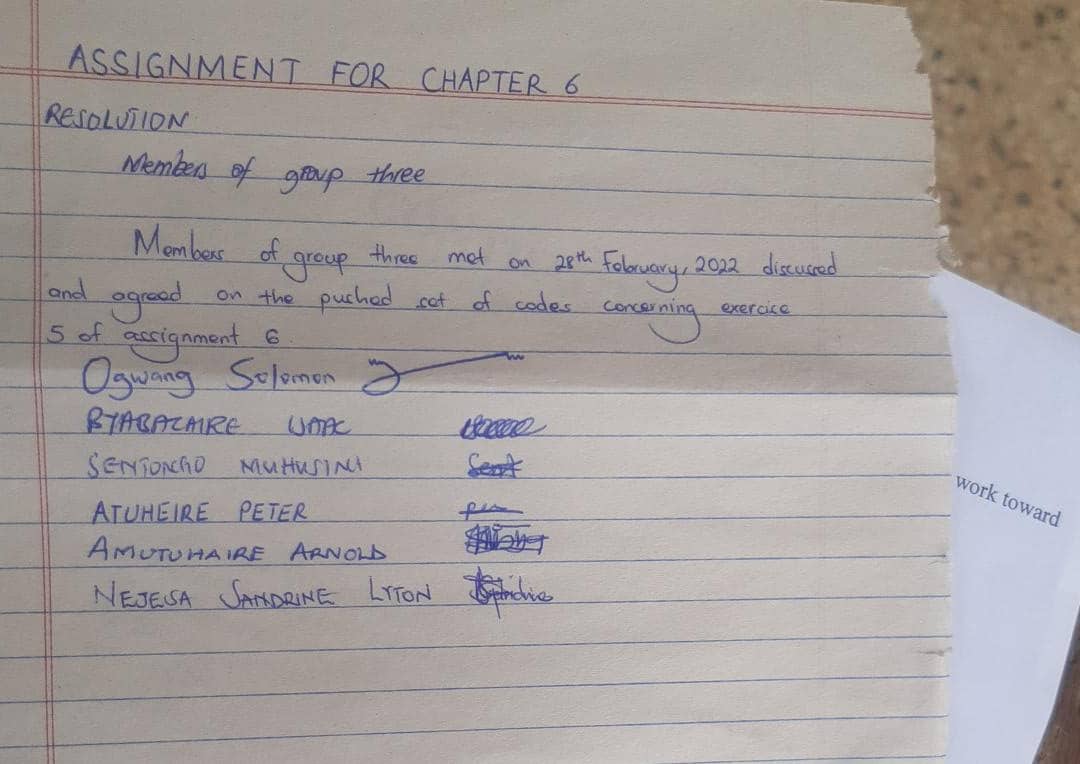 ASSIGNMENT FOR CHAPTER 6
RESOLUTION
Members of group three
Members of group three met on 28th February, 2022 discussed
and agreed on the pushed set of codes concerning exercise
5 of assignment 6.
Ogwang Solomon
BYABAZAIRE
MUHUSINI
ATUHEIRE PETER
AMUTUHAIRE ARNOLD
SANDRINE LYTON
work toward